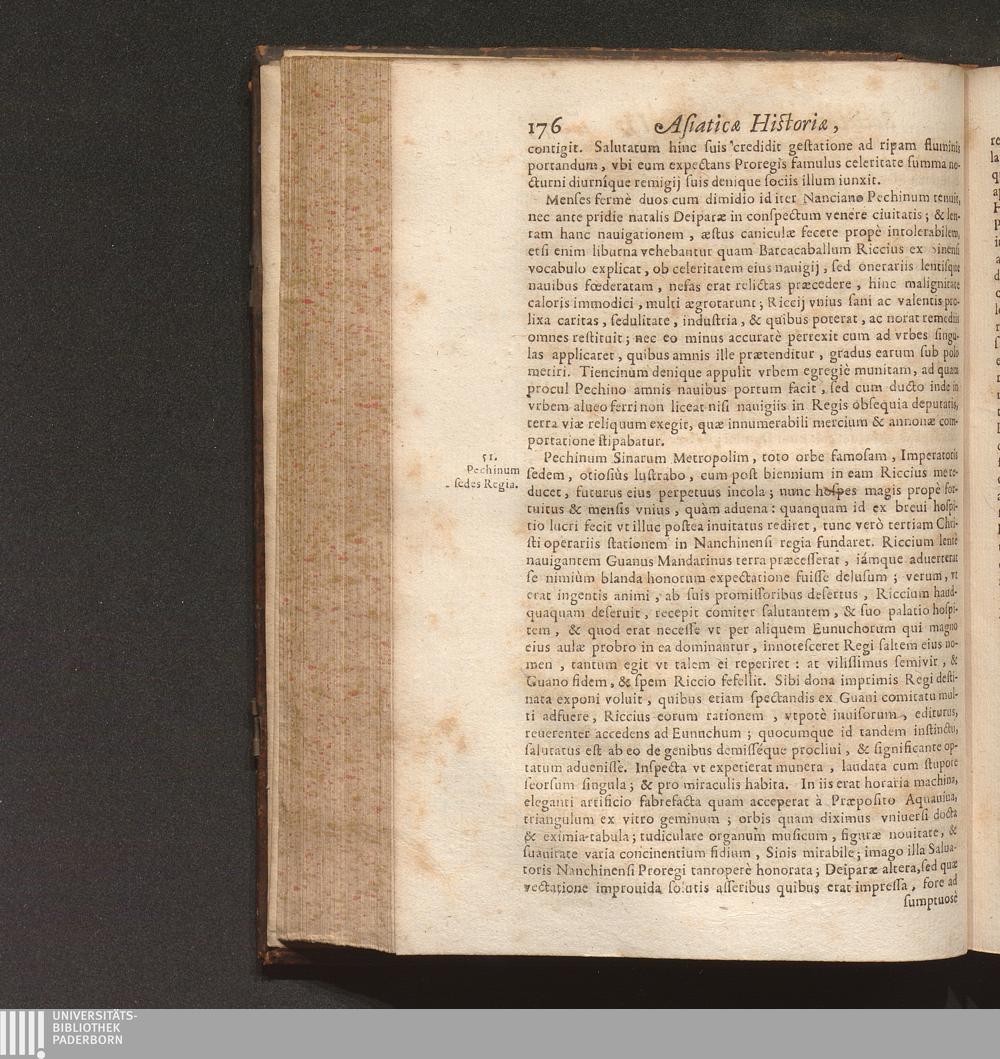 176 Asiaticæ Historiæ,
contigit. Salutatum hinc suis credidit gestatione ad ripam fluminis
portandum, vbi eum expectans Proregis famulus celeritate summa no-
cturni diurníque remigij suis denique sociis illum iunxit.
Menses fermè duos cum dimidio id iter Nanciano Pechinum tenuit,
nec ante pridie natalis Deiparæ in conspectum venere ciuitatis; & len-
tam hanc nauigationem, æstus caniculæ fecere propè intolerabilem,
etsi enim liburna vehebantur quam Barcacaballum Riccius ex sinensi
vocabulo explicat, ob celeritatem eius nauigij, sed onerariis lentisque
nauibus fœderatam, nefas erat relictas præcedere, hinc malignitate
caloris immodici, multi ægrotarunt; Riccij vnius sani ac valentis pro-
lixa caritas, sedulitate, industria, & quibus poterat, ac norat remediis
omnes restituit; nec eo minus accuratè perrexit cum ad vrbes singu-
las applicaret, quibus amnis ille prætenditur, gradus earum sub polo
metiri. Tiencinum denique appulit vrbem egregiè munitam, ad quam
procul Pechino amnis nauibus portum facit, sed cum ducto inde in
vrbem alueo ferri non liceat nisi nauigiis in Regis obsequia deputatis,
terra viæ reliquum exegit, quæ innumerabili mercium & annonæ com-
portatione stipabatur.
51.
Pechinum
sedes Regia.
Pechinum Sinarum Metropolim, toto orbe famosam, Imperatoris
sedem, otiosiùs lustrabo, cum post biennium in eam Riccius me re-
ducet, futurus eius perpetuus incola; nunc hospes magis propè for-
tuitus & mensis vnius, quàm aduena: quanquam id ex breui hospi-
tio lucri fecit vt illuc postea inuitatus rediret, tunc verò tertiam Chri-
sti operariis stationem in Nanchinensi regia fundaret. Riccium lentè
nauigantem Guanus Mandarinus terra præcesserat, iámque aduerterat
se nimiùm blanda honorum expectatione fuisse delusum; verum, vt
erat ingentis animi, ab suis promissoribus desertus, Riccium haud-
quaquam deseruit, recepit comiter salutantem, & suo palatio hospi-
tem, & quod erat necesse vt per aliquem Eunuchorum qui magno
eius aulæ probro in ea dominantur, innotesceret Regi saltem eius no-
men, tantum egit vt talem ei reperiret: at vilissimus semivir, &
Guano fidem, & spem Riccio fefellit. Sibi dona imprimis Regi desti-
nata exponi voluit, quibus etiam spectandis ex Guani comitatu mul-
ti adfuere, Riccius eorum rationem, vtpotè inuisorum, editurus,
reuerenter accedens ad Eunuchum; quocumque id tandem instinctu,
salutatus est ab eo de genibus demisséque procliui, & significante op-
tatum aduenisse. Inspecta vt expetierat munera, laudata cum stupore
seorsum singula; & pro miraculis habita. In iis erat horaria machina,
eleganti artificio fabrefacta quam acceperat à Præposito Aquauiua,
triangulum ex vitro geminum; orbis quam diximus vniuersi docta
& eximia tabula; tudiculare organum musicum, figuræ nouitate, &
suauitate varia concinentium fidium, Sinis mirabile; imago illa Salua-
toris Nanchinensi Proregi tantoperè honorata; Deiparæ altera, sed quæ
vectatione improuida solutis asseribus quibus erat impressa, fore ad
sumptuosè
UNIVERSITÄTS-
BIBLIOTHEK
PADERBORN